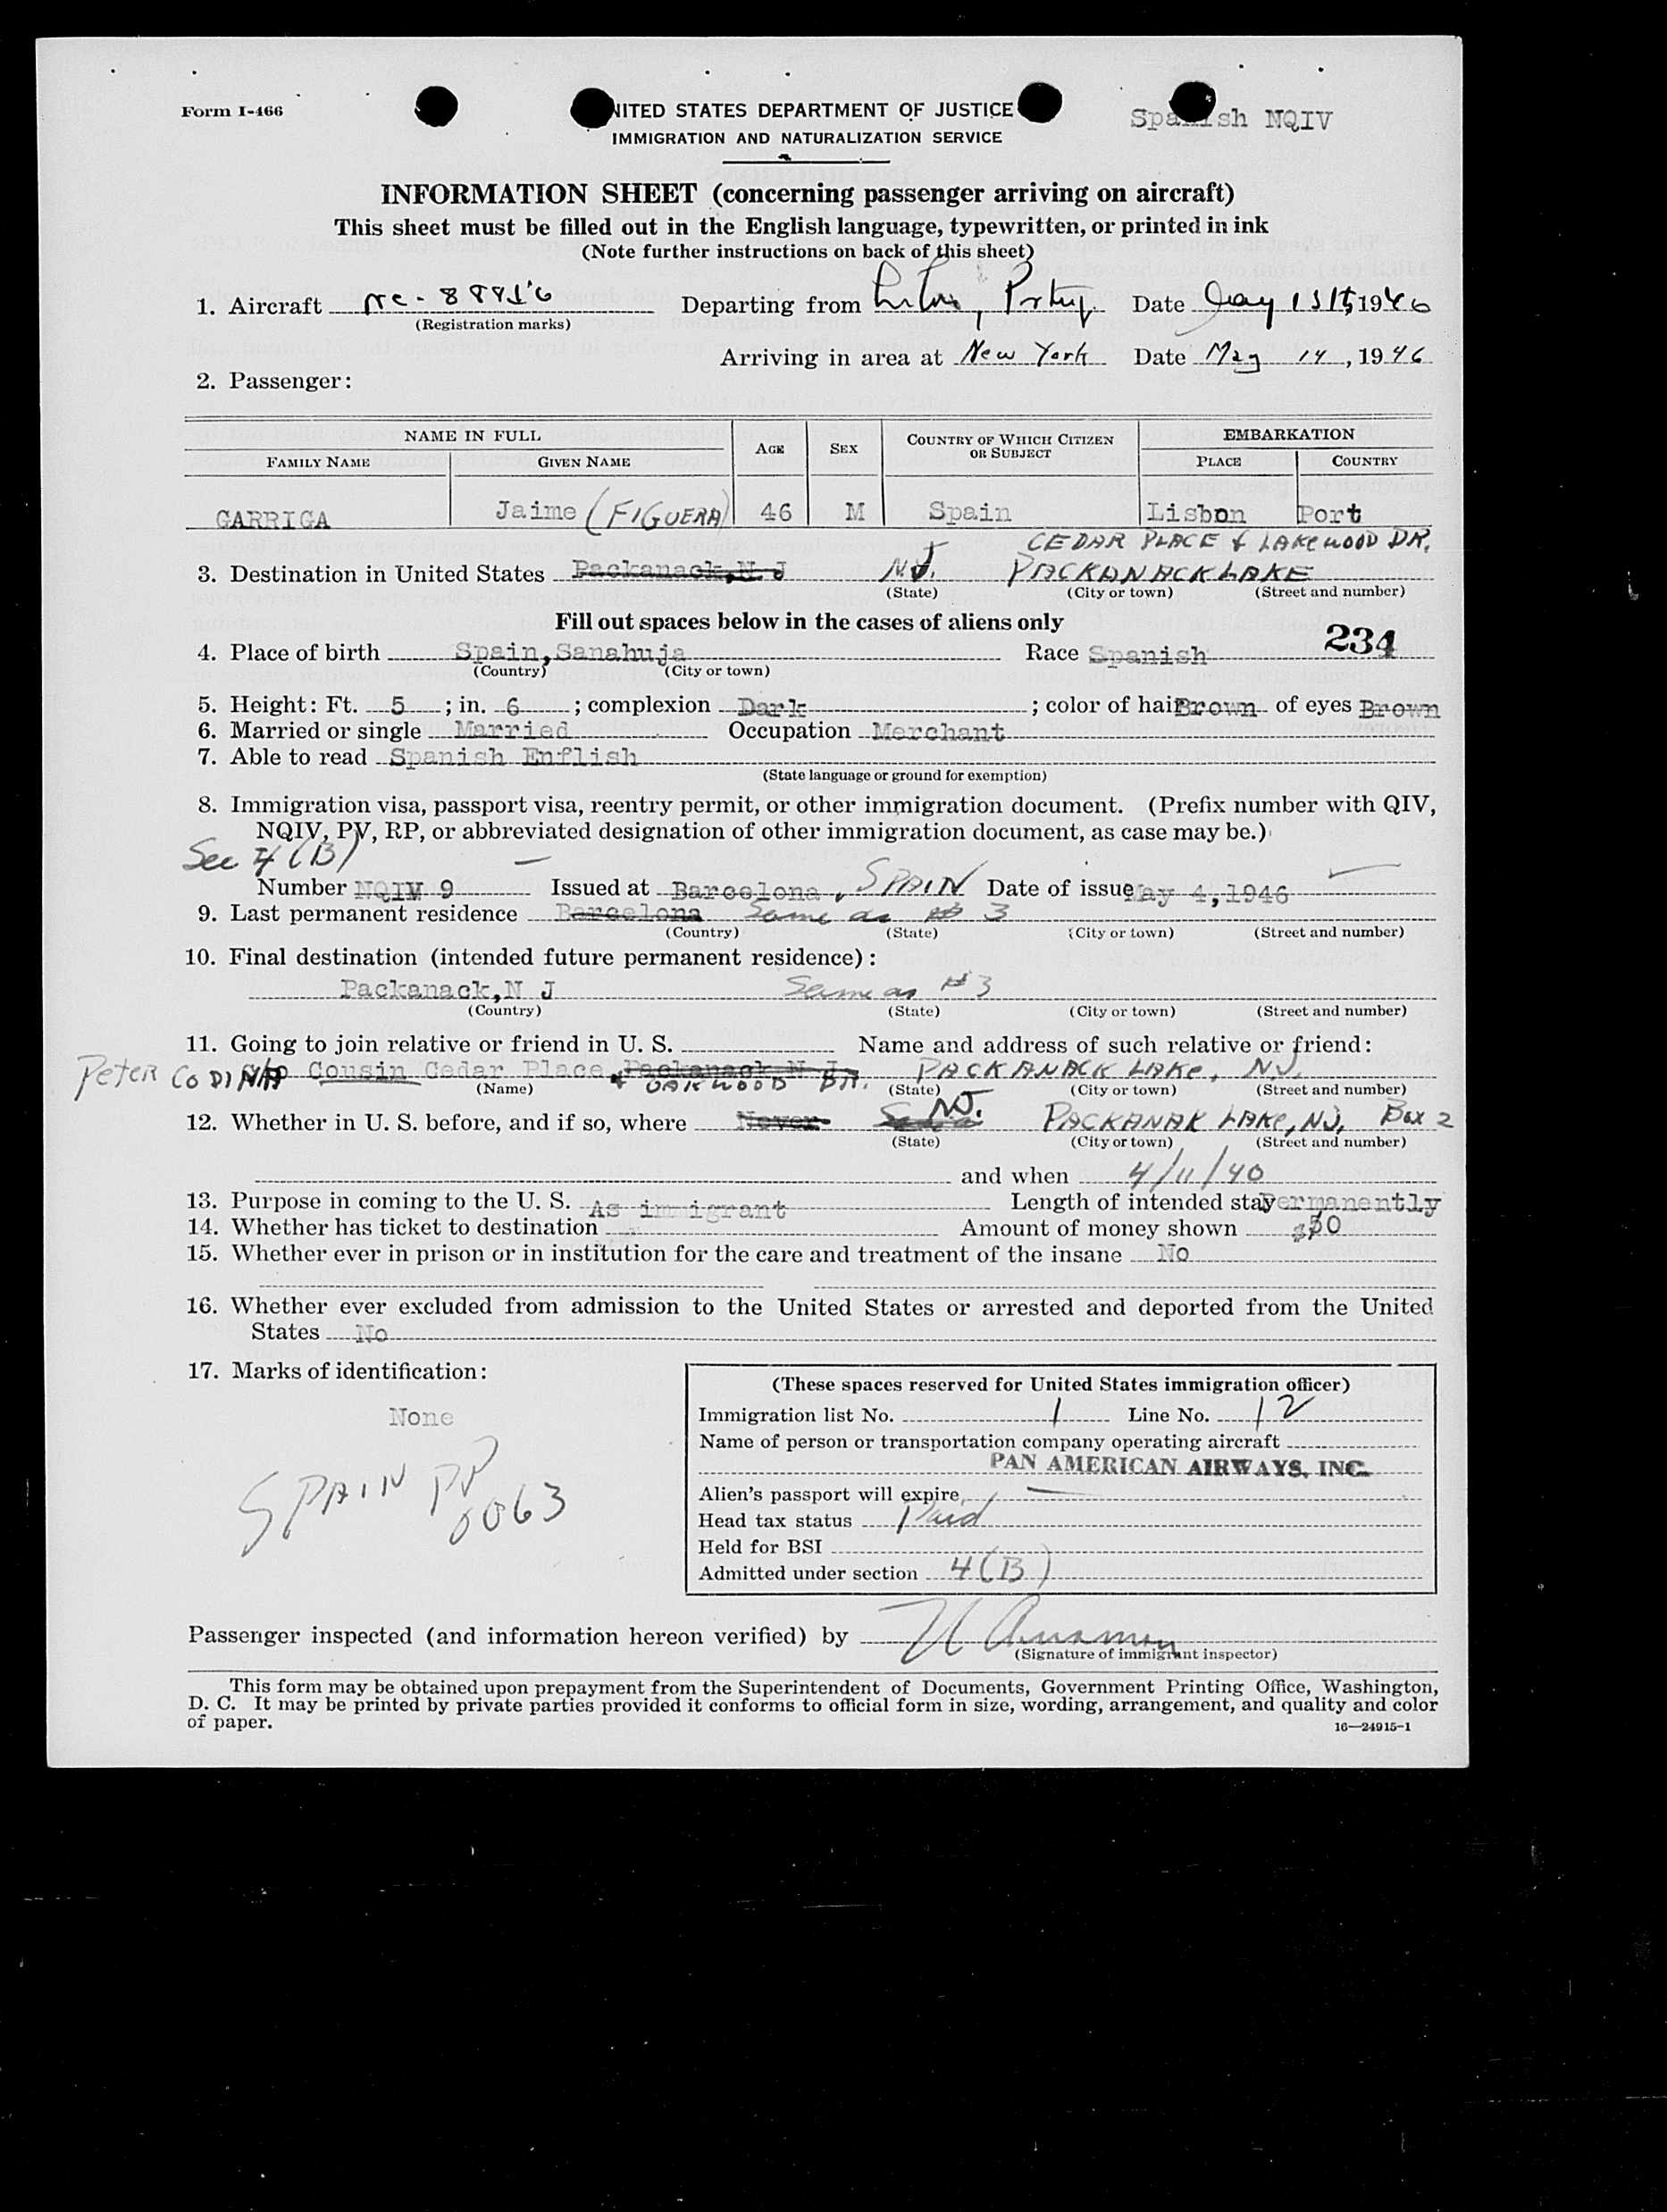 Form I-466
UNITED STATES DEPARTMENT OF JUSTICE
Spanish NQIV
IMMIGRATION AND NATURALIZATION SERVICE
INFORMATION SHEET (concerning passenger arriving on aircraft)
This sheet must be filled out in the English language, typewritten, or printed in ink
(Note further instructions on back of this sheet)
1. Aircraft Departing from Date 1946
(Registration marks)
Arriving in area at New York Date May 14, 1946
2. Passenger:
NAME IN FULL AGE SEX COUNTRY OF WHICH CITIZEN OR SUBJECT EMBARKATION
FAMILY NAME GIVEN NAME PLACE COUNTRY
GARRIGA Jaime (FIGUERA) 46 M Spain Lisbon Port
CEDAR PLACE & LAKEWOOD DR.
3. Destination in United States Packanack, N J N.J. PACKANACK LAKE
(State) (City or town) (Street and number)
Fill out spaces below in the cases of aliens only
234
4. Place of birth Spain, Sanahuja Race Spanish
(Country) (City or town)
5. Height: Ft. 5; in. 6; complexion Dark; color of hair Brown of eyes Brown
6. Married or single Married Occupation Merchant
7. Able to read Spanish Enflish
(State language or ground for exemption)
8. Immigration visa, passport visa, reentry permit, or other immigration document. (Prefix number with QIV,
NQIV, PV, RP, or abbreviated designation of other immigration document, as case may be.)
Sec 4 (B)
Number NQIV 9 Issued at Barcelona, SPAIN Date of issue May 4, 1946
9. Last permanent residence Barcelona Same as # 3
(Country) (State) (City or town) (Street and number)
10. Final destination (intended future permanent residence):
Packanack, N J Same as # 3
(Country) (State) (City or town) (Street and number)
11. Going to join relative or friend in U. S. Name and address of such relative or friend:
Peter CODINA Cousin Cedar Place, Packanack N J PACKANACK LAKE, N.J.
& OAKWOOD DR.
(Name) (State) (City or town) (Street and number)
12. Whether in U. S. before, and if so, where Never N.J. PACKANAK LAKE, N.J, Box 2
(State) (City or town) (Street and number)
and when 4/11/40
13. Purpose in coming to the U. S. As immigrant Length of intended stay Permanently
14. Whether has ticket to destination Amount of money shown $50
15. Whether ever in prison or in institution for the care and treatment of the insane No
16. Whether ever excluded from admission to the United States or arrested and deported from the United
States No
17. Marks of identification:
None
SPAIN PP
6063
(These spaces reserved for United States immigration officer)
Immigration list No. 1 Line No. 12
Name of person or transportation company operating aircraft
PAN AMERICAN AIRWAYS, INC.
Alien's passport will expire
Head tax status Paid
Held for BSI
Admitted under section 4(B)
Passenger inspected (and information hereon verified) by
(Signature of immigrant inspector)
This form may be obtained upon prepayment from the Superintendent of Documents, Government Printing Office, Washington,
D. C. It may be printed by private parties provided it conforms to official form in size, wording, arrangement, and quality and color
of paper.
16—24915-1